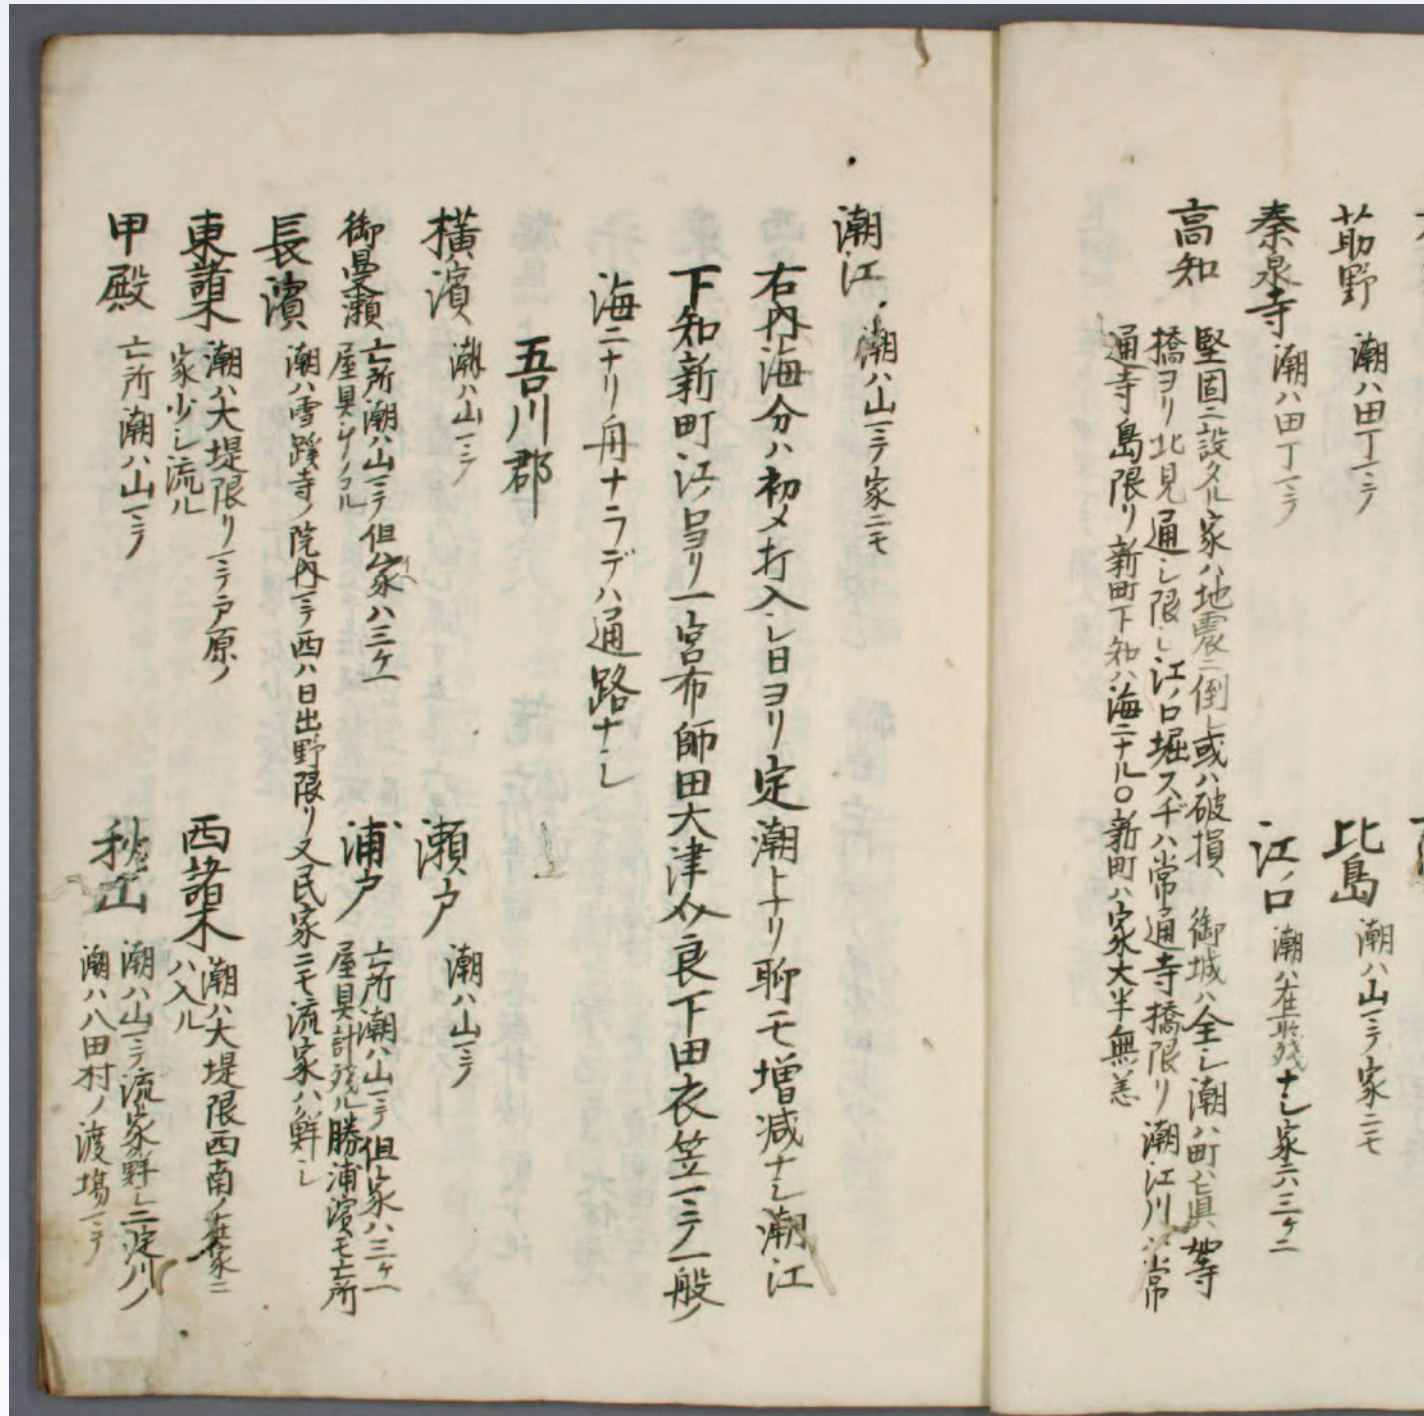 莇野 潮ハ田丁ニテ
比島 潮ハ山ニテ家ニモ
秦泉寺 潮ハ田丁ニテ
江ノ口 潮ハ在所残ナシ家六三ケ二
高知 堅固ニ設タル家ハ地震ニ倒レ或ハ破損 御城ハ全シ潮ハ町ハ真如寺
橋ヨリ北見通シ限レ江ノ口堀スヂハ常通寺橋限リ潮江川ハ常
通寺島限リ新町下知ハ海ニナル〇新町ハ家大半無恙
潮江 潮ハ山ニテ家ニモ
右内海分ハ初メ打入シ日ヨリ定潮トナリ聊モ増減ナシ潮江
下知新町江ノ口ヨリ一宮布師田大津介良下田衣笠ニテ一般ノ
海ニナリ舟ナラデハ通路ナシ
吾川郡
横濱 潮ハ山ニテ
瀬戸 潮ハ山ニテ
御畳瀬 亡所潮ハ山ニテ但シ家ハ三ケ一
屋具計ノコル
浦戸 亡所潮ハ山ニテ但シ家ハ三ケ一
屋具計残ル勝浦濱モ亡所
長濱 潮ハ雪蹊寺ノ院内ニテ西ハ日出野限リ又民家ニモ流家ハ鮮シ
東諸木 潮ハ大堤限リニテ戸原ノ
家少シ流ル
西諸木 潮ハ大堤限西南ノ在家ニ
ハ入ル
甲殿 亡所潮ハ山ニテ
秋山 潮ハ山ニテ流家鮮シ二淀川ノ
潮ハ八田村ノ渡場ニテ